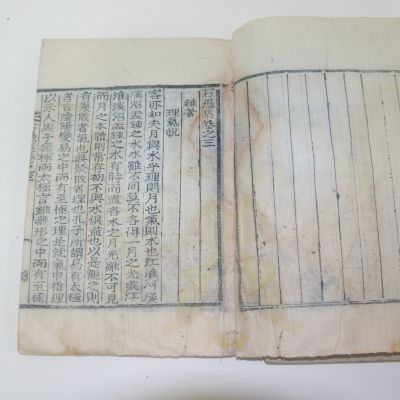 石愚集卷之三
雜著
理氣說
客亦知夫月與水乎理則月也氣則水也江淮河漢
溪沼盂鍾之水雖不同莫不各得一月之光或江
淮溪沼盂鍾之水有時而盡各水之月光雖不可見
而月之本體則常存初不與水俱盡也以是觀之則
有聚散者氣也無聚散者理也孔子所謂易有太極
者言陰陽變易之中而有至極之理是就氣中指理
以示人周子無極而太極言雖無形之中而有至極